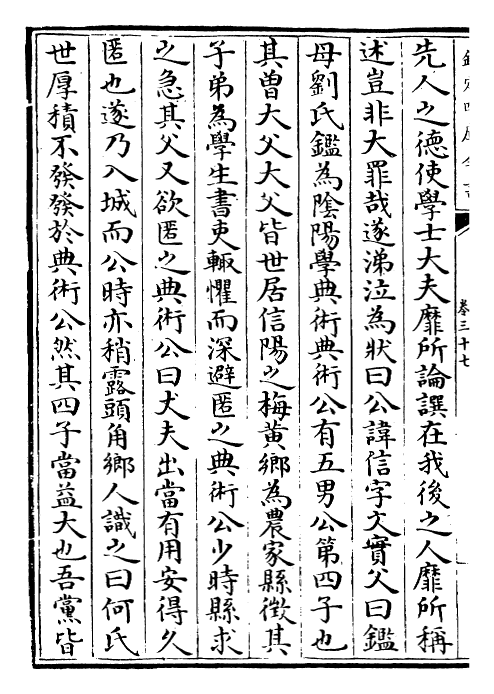 欽定四庫全書
卷三十七
先人之德使學士大夫靡所論譔在我後之人靡所稱
述豈非大罪哉遂涕泣為狀曰公諱信字文實父曰鑑
母劉氏鑑為陰陽學典術典術公有五男公第四子也
其曽大父大父皆世居信陽之梅黄鄉為農家縣徴其
子弟為學生書吏輙懼而深避匿之典術公少時縣求
之急其父又欲匿之典術公曰犬夫出當有用安得久
匿也遂乃入城而公時亦稍露頭角鄉人識之曰何氏
世厚積不發發於典術公然其四子當益大也吾黨皆